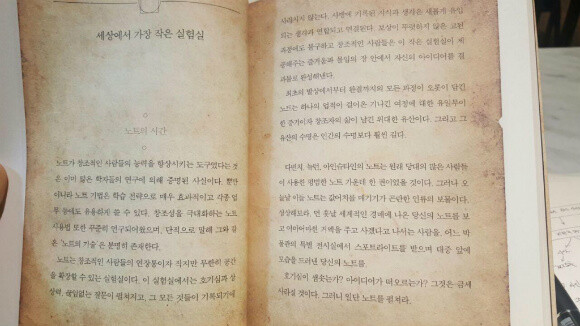 세상에서 가장 작은 실험실
노트의 시간
노트가 창조적인 사람들의 능력을 향상시키는 도구였다는 것
은 이미 많은 학자들의 연구에 의해 증명된 사실이다. 뿐만
아니라 노트 기법은 학습 전략으로 매우 효과적이고 각종 업
무 등에도 유용하게 쓸 수 있다. 창조성을 극대화하는 노트
사용법 또한 꾸준히 연구되어왔으며, 단적으로 말해 그와 같
은 '노트의 기술'은 분명히 존재한다.
노트는 창조적인 사람들의 연장통이자 작지만 무한히 공간
을 확장할 수 있는 실험실이다. 이 실험실에서는 호기심과 상
상력, 끊임없는 질문이 펼쳐지고, 그 모든 것들이 기록되기에
사라지지 않는다. 지면에 기록된 지식과 생각은 새롭게 유입
되는 생각과 연합되고 연결된다. 보상이 뚜렷하지 않은 고된
과정에도 불구하고 창조적인 사람들은 이 작은 실험실이 제
공해주는 즐거움과 몰입의 장 안에서 자신의 아이디어를 결
과물로 완성해낸다.
최초의 발상에서부터 완결까지의 모든 과정이 오롯이 담긴
노트는 하나의 업적이 걸어온 기나긴 여정에 대한 유일무이
한 증거이자 창조자의 삶이 남긴 위대한 유산이다. 그리고 그
유산의 수명은 인간의 수명보다 훨씬 길다.
다빈치, 뉴턴, 아인슈타인의 노트는 원래 당대의 많은 사람들
이 사용한 평범한 노트 가운데 한 권이었을 것이다. 그러나 오
늘날 이들 노트는 값어치를 매기기가 곤란한 인류의 보물이다.
상상해보라. 먼 훗날 세계적인 경매에 나온 당신의 노트를 보
고 어마어마한 거액을 주고 사겠다고 나서는 사람을, 어느 박
물관의 특별 전시실에서 스포트라이트를 받으며 대중 앞에
모습을 드러낸 당신의 노트를.
호기심이 샘솟는가? 아이디어가 떠오르는가? 그것은 금세
사라질 것이다. 그러니 일단 노트를 펼쳐라.